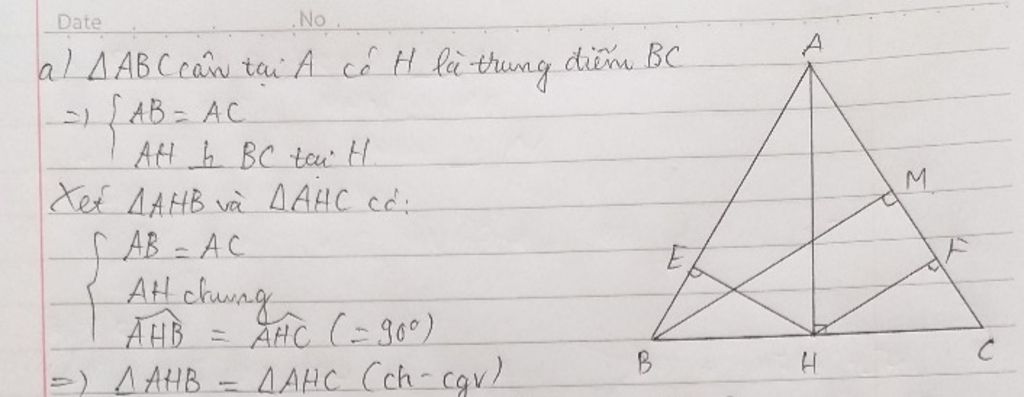 Date No.
a) ΔABC cân tại A có H là trung điểm BC
=> { AB = AC
AH ⊥ BC tại H
Xét ΔAHB và ΔAHC có:
{ AB = AC
AH chung
\widehat{AHB} = \widehat{AHC} (= 90°)
=> ΔAHB = ΔAHC (ch - cgv)
A
M
E
F
B
H
C